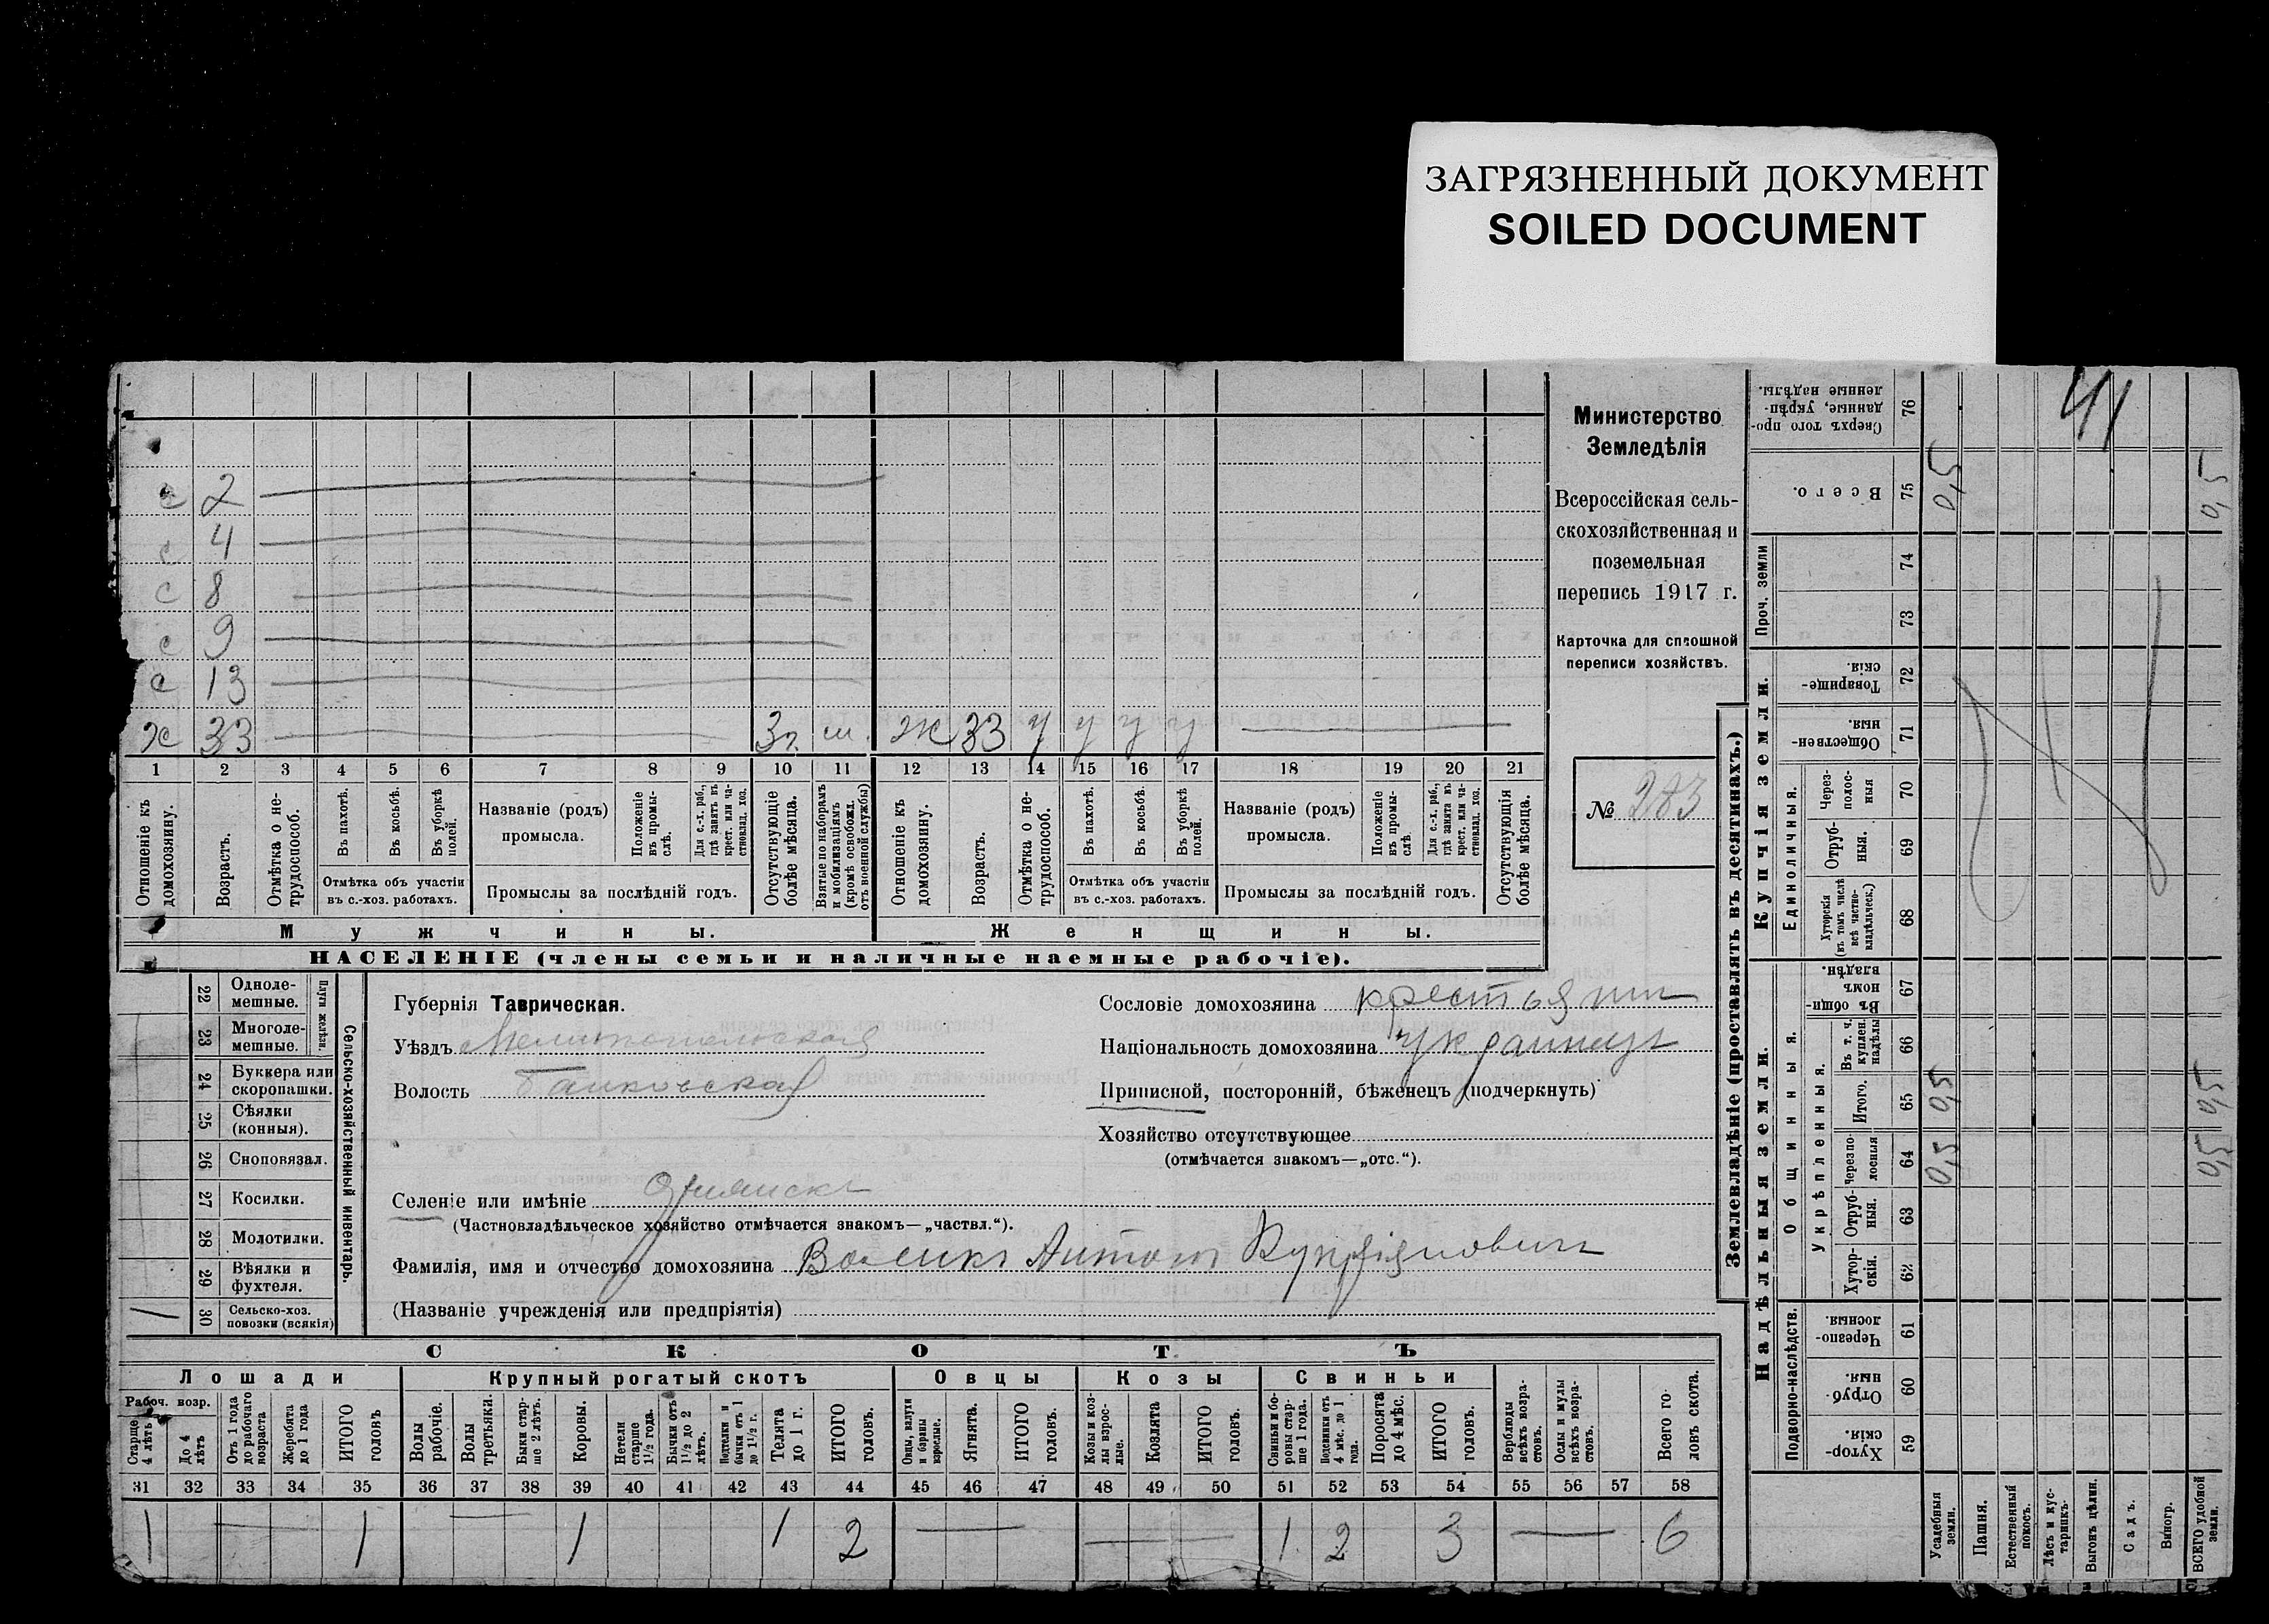 ЗАГРЯЗНЕННЫЙ ДОКУМЕНТ
SOILED DOCUMENT
с 2
с 4
с 8
с 9
с 13
х 33 3г. ж 33 у у у у
1 2 3 4 5 6 7 8 9 10 11 12 13 14 15 16 17 18 19 20 21
Отношеніе къ домохозяину.
Возрастъ.
Отмѣтка о нетрудоспособ.
Въ пахотѣ.
Въ косьбѣ.
Въ уборкѣ полей.
Отмѣтка объ участіи
въ с.-хоз. работахъ.
Названіе (родъ)
промысла.
Положеніе въ промыслѣ.
Для с.-х. раб., гдѣ занятъ въ крест. или частновлад. хоз.
Промыслы за послѣдній годъ.
Отсутствующіе болѣе мѣсяца.
Взятые по наборамъ и мобилизаціямъ (кромѣ освобожд. отъ военной службы)
Отношеніе къ домохозяину.
Возрастъ.
Отмѣтка о нетрудоспособ.
Въ пахотѣ.
Въ косьбѣ.
Въ уборкѣ полей.
Отмѣтка объ участіи
въ с.-хоз. работахъ.
Названіе (родъ)
промысла.
Положеніе въ промыслѣ
Для с.-х. раб., гдѣ занята въ крест. или частновлад. хоз.
Промыслы за послѣдній годъ.
Отсутствующія болѣе мѣсяца.
Мужчины. Женщины.
НАСЕЛЕНІЕ (члены семьи и наличные наемные рабочіе).
Министерство
Земледѣлія
Всероссійская сель-
скохозяйственная и
поземельная
перепись 1917 г.
Карточка для сплошной
переписи хозяйствъ.
№ 283
22 Одноле-
мешные.
23 Многоле-
мешные.
Плуги желѣзн.
24 Буккера или
скоропашки.
25 Сѣялки
(конныя).
26 Сноповязал.
27 Косилки.
28 Молотилки.
29 Вѣялки и
фухтеля.
30 Сельско-хоз.
повозки (всякія)
1
Сельско-хозяйственный инвентарь.
Губернія Таврическая.
Уѣздъ Мелитопольская
Волость
Селеніе или имѣніе
(Частновладѣльческое хозяйство отмѣчается знакомъ—„частвл.“).
Фамилія, имя и отчество домохозяина Антонъ Купріяновичъ
(Названіе учрежденія или предпріятія)
Сословіе домохозяина крестьянин
Національность домохозяина украинецъ
Приписной, посторонній, бѣженецъ (подчеркнуть)
Хозяйство отсутствующее
(отмѣчается знакомъ—„отс.“).
СКОТЪ
Лошади Крупный рогатый скотъ Овцы Козы Свиньи
Рабоч. возр.
Старше 4 лѣтъ
До 4 лѣтъ
Отъ 1 года до рабочаго возраста
Жеребята до 1 года
ИТОГО головъ
Волы рабочіе.
Волы третьяки.
Быки старше 2 лѣтъ.
Коровы.
Нетели старше 1½ года.
Бычки отъ 1½ до 2 лѣтъ.
Подтелки и бычки отъ 1 до 1½ г.
Телята до 1 г.
ИТОГО головъ.
Овцы, валухи и бараны взрослые.
Ягнята.
ИТОГО головъ.
Козы и козлы взрослые.
Козлята
ИТОГО головъ.
Свиньи и боровы старше 1 года.
Подсвинки отъ 4 мѣс. до 1 года.
Поросята до 4 мѣс.
ИТОГО головъ.
Верблюды всѣхъ возрастовъ.
Ослы и мулы всѣхъ возрастовъ.
Всего головъ скота.
31 32 33 34 35 36 37 38 39 40 41 42 43 44 45 46 47 48 49 50 51 52 53 54 55 56 57 58
1 — 1 — 1 1 2 — — 1 2 3 — 6
Землевладѣніе (проставлять въ десятинахъ.)
Надѣльныя земли. Купчія земли.
Подворно-наслѣдств.
Общинныя.
Укрѣпленныя.
Единоличныя.
Проч. земли
Хуторскія. 59
Отрубныя. 60
Черезполосныя. 61
Хуторскія. 62
Отрубныя. 63
Черезполосныя 64
Итого. 65
Въ т. ч. куплен. надѣлы 66
Въ общинномъ владѣн. 67
Хуторскія (въ томъ числѣ всѣ частновладѣльческ.) 68
Отрубныя. 69
Черезполосныя 70
Общественныя. 71
Товарищескія. 72
73
74
Всего. 75
Сверхъ того проданные, укрѣпленные надѣлы. 76
41
0,5 0,5 0,5
0,5 0,5 0,5
Усадебныя земли.
Пашня.
Естественный покосъ.
Лѣсъ и кустарникъ.
Выгонъ цѣлин.
Садъ.
Виногр.
ВСЕГО удобной земли.